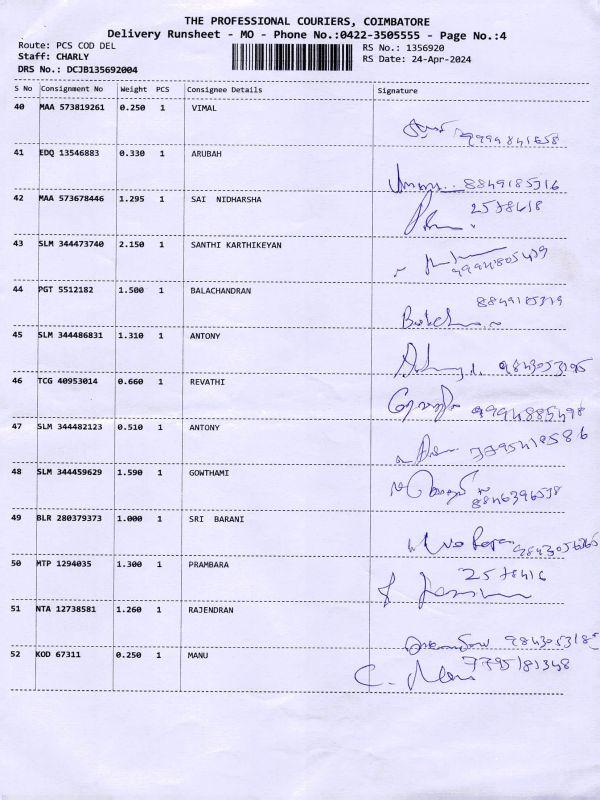 THE PROFESSIONAL COURIERS, COIMBATORE
Delivery Runsheet - MO - Phone No.:0422-3505555 - Page No.:4
Route: PCS COD DEL
RS No.: 1356920
Staff: CHARLY
RS Date: 24-Apr-2024
DRS No.: DCJB135692004
S No Consignment No Weight PCS Consignee Details Signature
40 MAA 573819261 0.250 1 VIMAL
41 EDQ 13546883 0.330 1 ARUBAH
8849185316
42 MAA 573678446 1.295 1 SAI NIDHARSHA
2578618
43 SLM 344473740 2.150 1 SANTHI KARTHIKEYAN
44 PGT 5512182 1.500 1 BALACHANDRAN
8849185319
45 SLM 344486831 1.310 1 ANTONY
9843053195
46 TCG 40953014 0.660 1 REVATHI
9994885498
47 SLM 344482123 0.510 1 ANTONY
7795418586
48 SLM 344459629 1.590 1 GOWTHAMI
49 BLR 280379373 1.000 1 SRI BARANI
50 MTP 1294035 1.300 1 PRAMBARA
2578416
51 NTA 12738581 1.260 1 RAJENDRAN
52 KOD 67311 0.250 1 MANU
7795181348